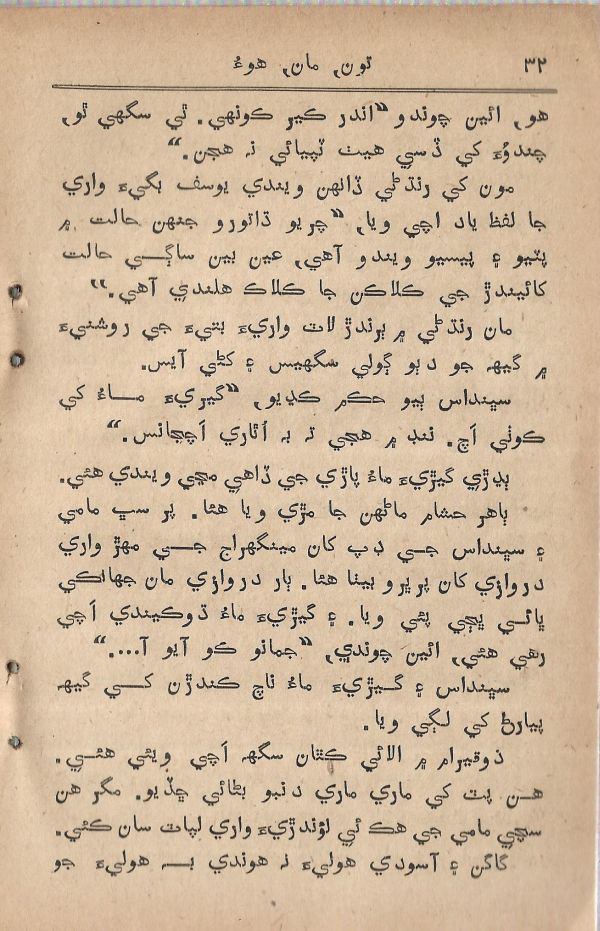 ٣٢ تون, مان, هوءُ
هو, ائين چوندو “اندر ڪير ڪونهي. ٿي سگهي ٿو,
چندوُءَ کي ڏسي هيٺ ٽپيائي نہ هجن.”
مون کي رنڌڻي ڏانهن ويندي يوسف بگيءَ واري
جا لفظ ياد اچي ويا, “چريو ڌاتورو جنهن حالت ۾
پٽيو ۽ پيسيو ويندو آهي, عين بين ساڳي حالت
کائيندڙ جي ڪلاڪن جا ڪلاڪ هلندي آهي.”
مان رنڌڻي ۾ ٻرندڙ لاٽ واريءَ بتيءَ جي روشنيءَ
۾ گيهہ جو دٻو ڳولي سگهيس ۽ کڻي آيس.
سپنداس ٻيو حڪم ڪڍيو, “گيريءَ ماءُ کي
ڪوٺي اَچ. ننڊ ۾ هجي تہ بہ اُٿاري اَچجانس.”
ٻڍڙي گيڙيءَ ماءُ پاڙي جي ڏاهي مڃي ويندي هئي.
ٻاهر حشام ماڻهن جا مڙي ويا هئا. پر سڀ مامي
۽ سپنداس جي ڊپ کان مينگهراج جي مهڙ واري
دروازي کان پرڀرو بيٺا هئا. ٻار دروازي مان جهاتڪي
پائي ڀڄي پئي ويا. ۽ گيڙيءَ ماءُ ڊوڪيندي اَچي
رهي هئي, ائين چوندي, “جمانو ڪو آيو آ....”
سپنداس ۽ گيڙيءَ ماءُ ناچ ڪندڙن کي گيهہ
پيارڻ کي لڳي ويا.
ذوقيرام ۾ الائي ڪٿان سگهہ اَچي ويئي هئي.
هن پٽ کي ماري ماري دنبو بڻائي ڇڏيو. مگر هن
سڄي مامي جي هڪ ئي لؤندڙيءَ واري لپاٽ سان ڪئي.
گاگن ۽ آسودي هوليءَ نہ هوندي بہ هوليءَ جو